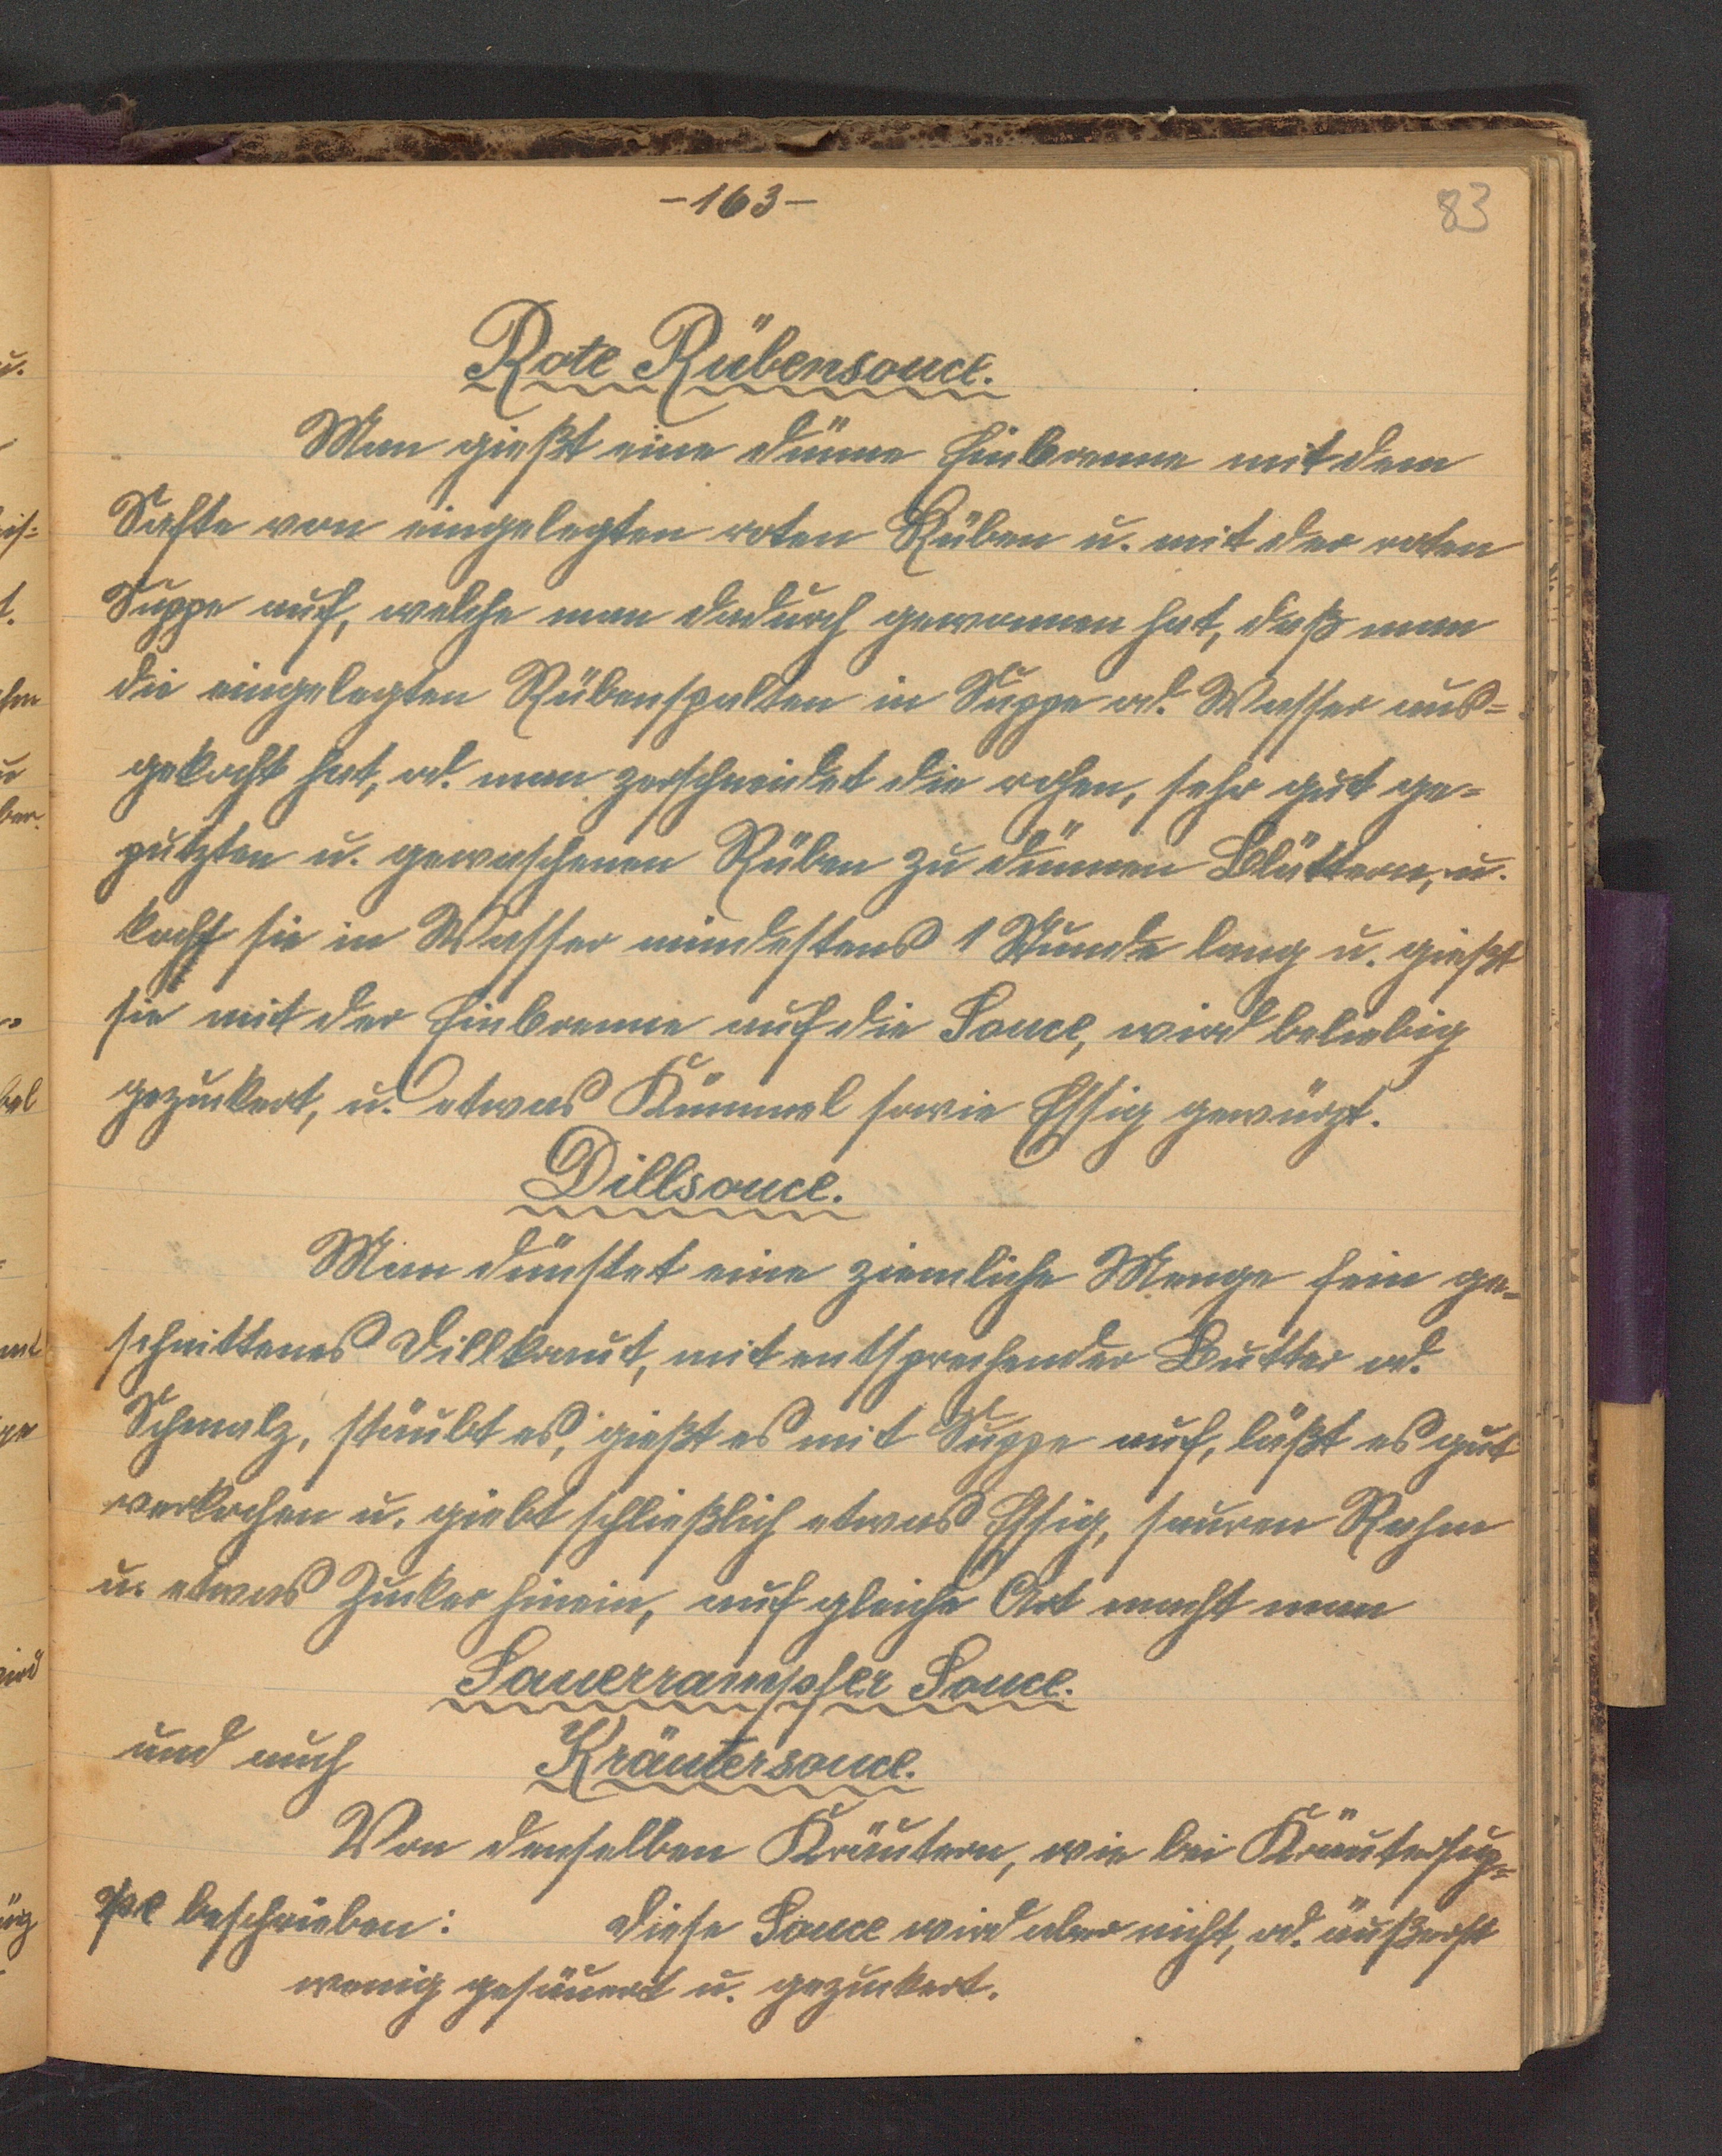 -163-
83
Rote Rübensouce.
Man gießt eine dünne Einbrenne mit dem
Safte von eingelegten roten Rüben u. mit der roten
Suppe auf, welche man dadurch gewonnen hat, daß man
die eingelegten Rübenspalten in Suppe od. Wasser aus=
gekocht hat, od. man zerschneidet die rohen, sehr gut ge=
putzten u. gewaschenen Rüben zu dünnen Blättern, u.
kocht sie in Wasser mindestens 1 Stunde lang u. gießt
sie mit der Einbrenne auf die Souce, wird beliebig
gezuckert, u. etwas Kümmel sowie Essig gewürzt.
Dillsouce.
Man dünstet eine ziemliche Menge fein ge=
schnittenes Dillkraut, mit entsprechender Butter od.
Schmalz, stäubt es, gießt es mit Suppe auf, läßt es gut
verkochen u. giebt schließlich etwas Essig, sauren Rahm
u. etwas Zucker hinein, auf gleiche Art macht man
Sauerrampfer Souce.
und auch Kräutersouce.
Von denselben Kräutern, wie bei Kräutersup=
pe beschrieben: diese Souce wird aber nicht, od. äußerst
wenig gesäuert u. gezuckert.